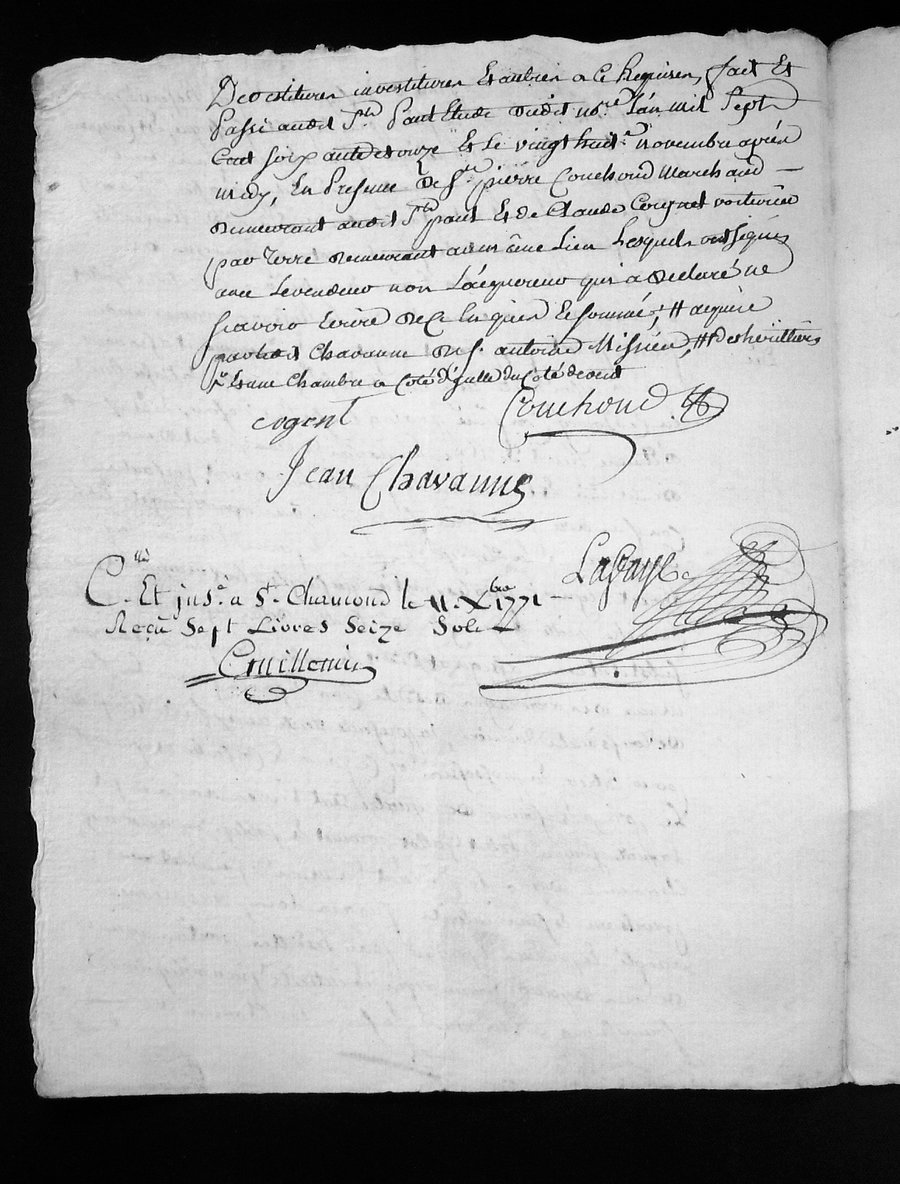 Devestitures investitures Et aubien a Ce Requises, fait Et
Passé audit St Paul Etude dudit nore L'an mil Sept
Cent soixante et onze Et Le vingt huite novembre après
midy, En Presence de Sr pierre Couchoud Marchand
demeurant audit St paul Et de Claude Coignet voiturier
par Terre demeurant au même Lieu Lesquels ont signés
avec Le vendeur non L'acquereur qui a declaré ne
scavoir Ecrire de Ce Enquis Et sommé; # acquise
par ledit Chavanne de Sr antoine # des heritiers
Et une Chambre a Coté du Coté de
cogent Couchoud
Jean Chavanne
Lafaye
C. Et ins. a St Chamond le 11 Xbre 1771
Reçu Sept Livres Seize Sols